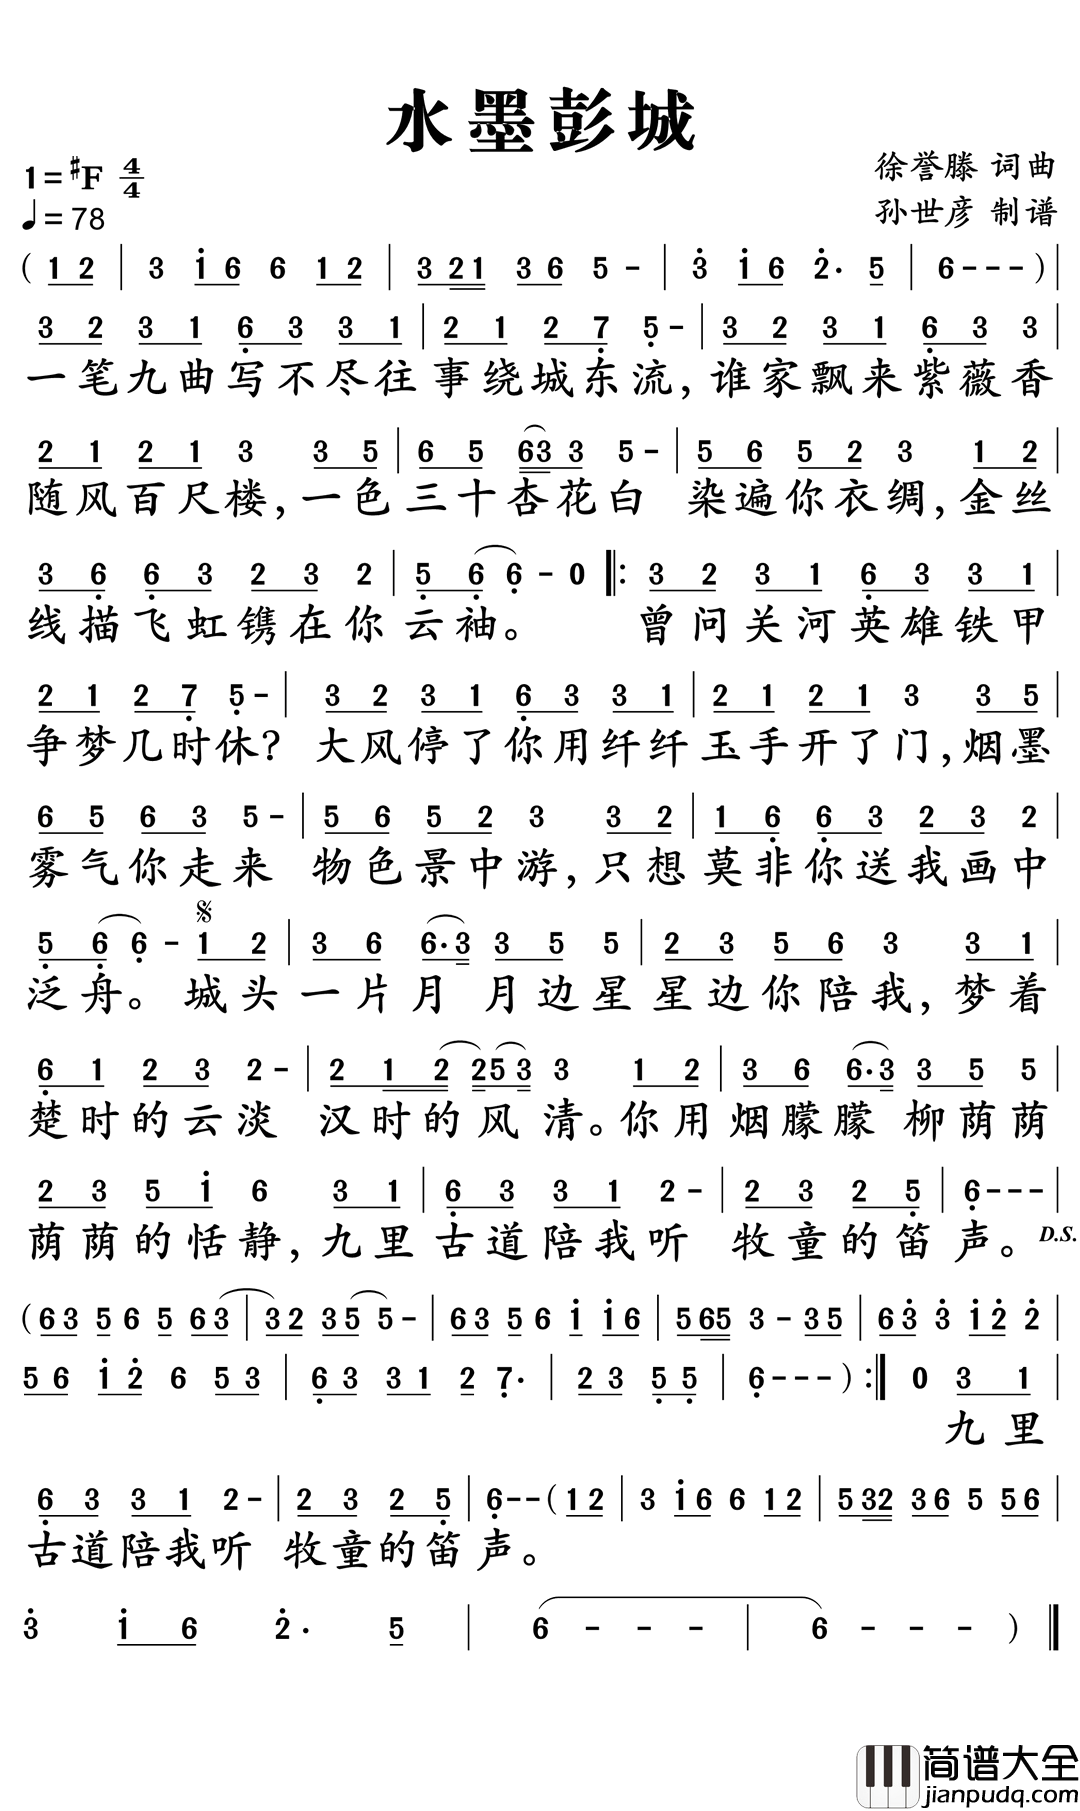 水墨彭城
1=♯F 4/4
徐誉滕 词曲
♩=78
孙世彦 制谱
( 1 2 | 3 i 6 6 1 2 | 3 2 1 3 6 5 - | 3 i 6 2· 5 | 6 - - - ) |
3 2 3 1 6 3 3 1 | 2 1 2 7 5 - | 3 2 3 1 6 3 3
一笔九曲写不尽往事绕城东流,谁家飘来紫薇香
2 1 2 1 3 3 5 | 6 5 6 3 3 5 - | 5 6 5 2 3 1 2 |
随风百尺楼,一色三十杏花白 染遍你衣绸,金丝
3 6 6 3 2 3 2 | 5 6 6 - 0 ‖: 3 2 3 1 6 3 3 1 |
线描飞虹镌在你云袖。 曾问关河英雄铁甲
2 1 2 7 5 - | 3 2 3 1 6 3 3 1 | 2 1 2 1 3 3 5 |
争梦几时休? 大风停了你用纤纤玉手开了门,烟墨
6 5 6 3 5 - | 5 6 5 2 3 3 2 | 1 6 6 3 2 3 2 |
雾气你走来 物色景中游,只想莫非你送我画中
5 6 6 - 𝄋 1 2 | 3 6 6· 3 3 5 5 | 2 3 5 6 3 3 1 |
泛舟。 城头一片月 月边星星边你陪我,梦着
6 1 2 3 2 - | 2 1 2 2 5 3 3 1 2 | 3 6 6· 3 3 5 5
楚时的云淡 汉时的风清。你用烟朦朦 柳荫荫
2 3 5 i 6 3 1 | 6 3 3 1 2 - | 2 3 2 5 | 6 - - - |
荫荫的恬静,九里古道陪我听 牧童的笛声。 D.S.
( 6 3 5 6 5 6 3 | 3 2 3 5 5 - | 6 3 5 6 i i 6 | 5 6 5 3 - 3 5 | 6 3 3 i 2 2 |
5 6 i 2 6 5 3 | 6 3 3 1 2 7· | 2 3 5 5 | 6 - - - ) :‖ 0 3 1 |
九里
6 3 3 1 2 - | 2 3 2 5 | 6 - - ( 1 2 | 3 i 6 6 1 2 | 5 3 2 3 6 5 5 6 |
古道陪我听 牧童的笛声。
3 i 6 2· 5 | 6 - - - | 6 - - - ) ‖
简谱大全
jianpudq.com